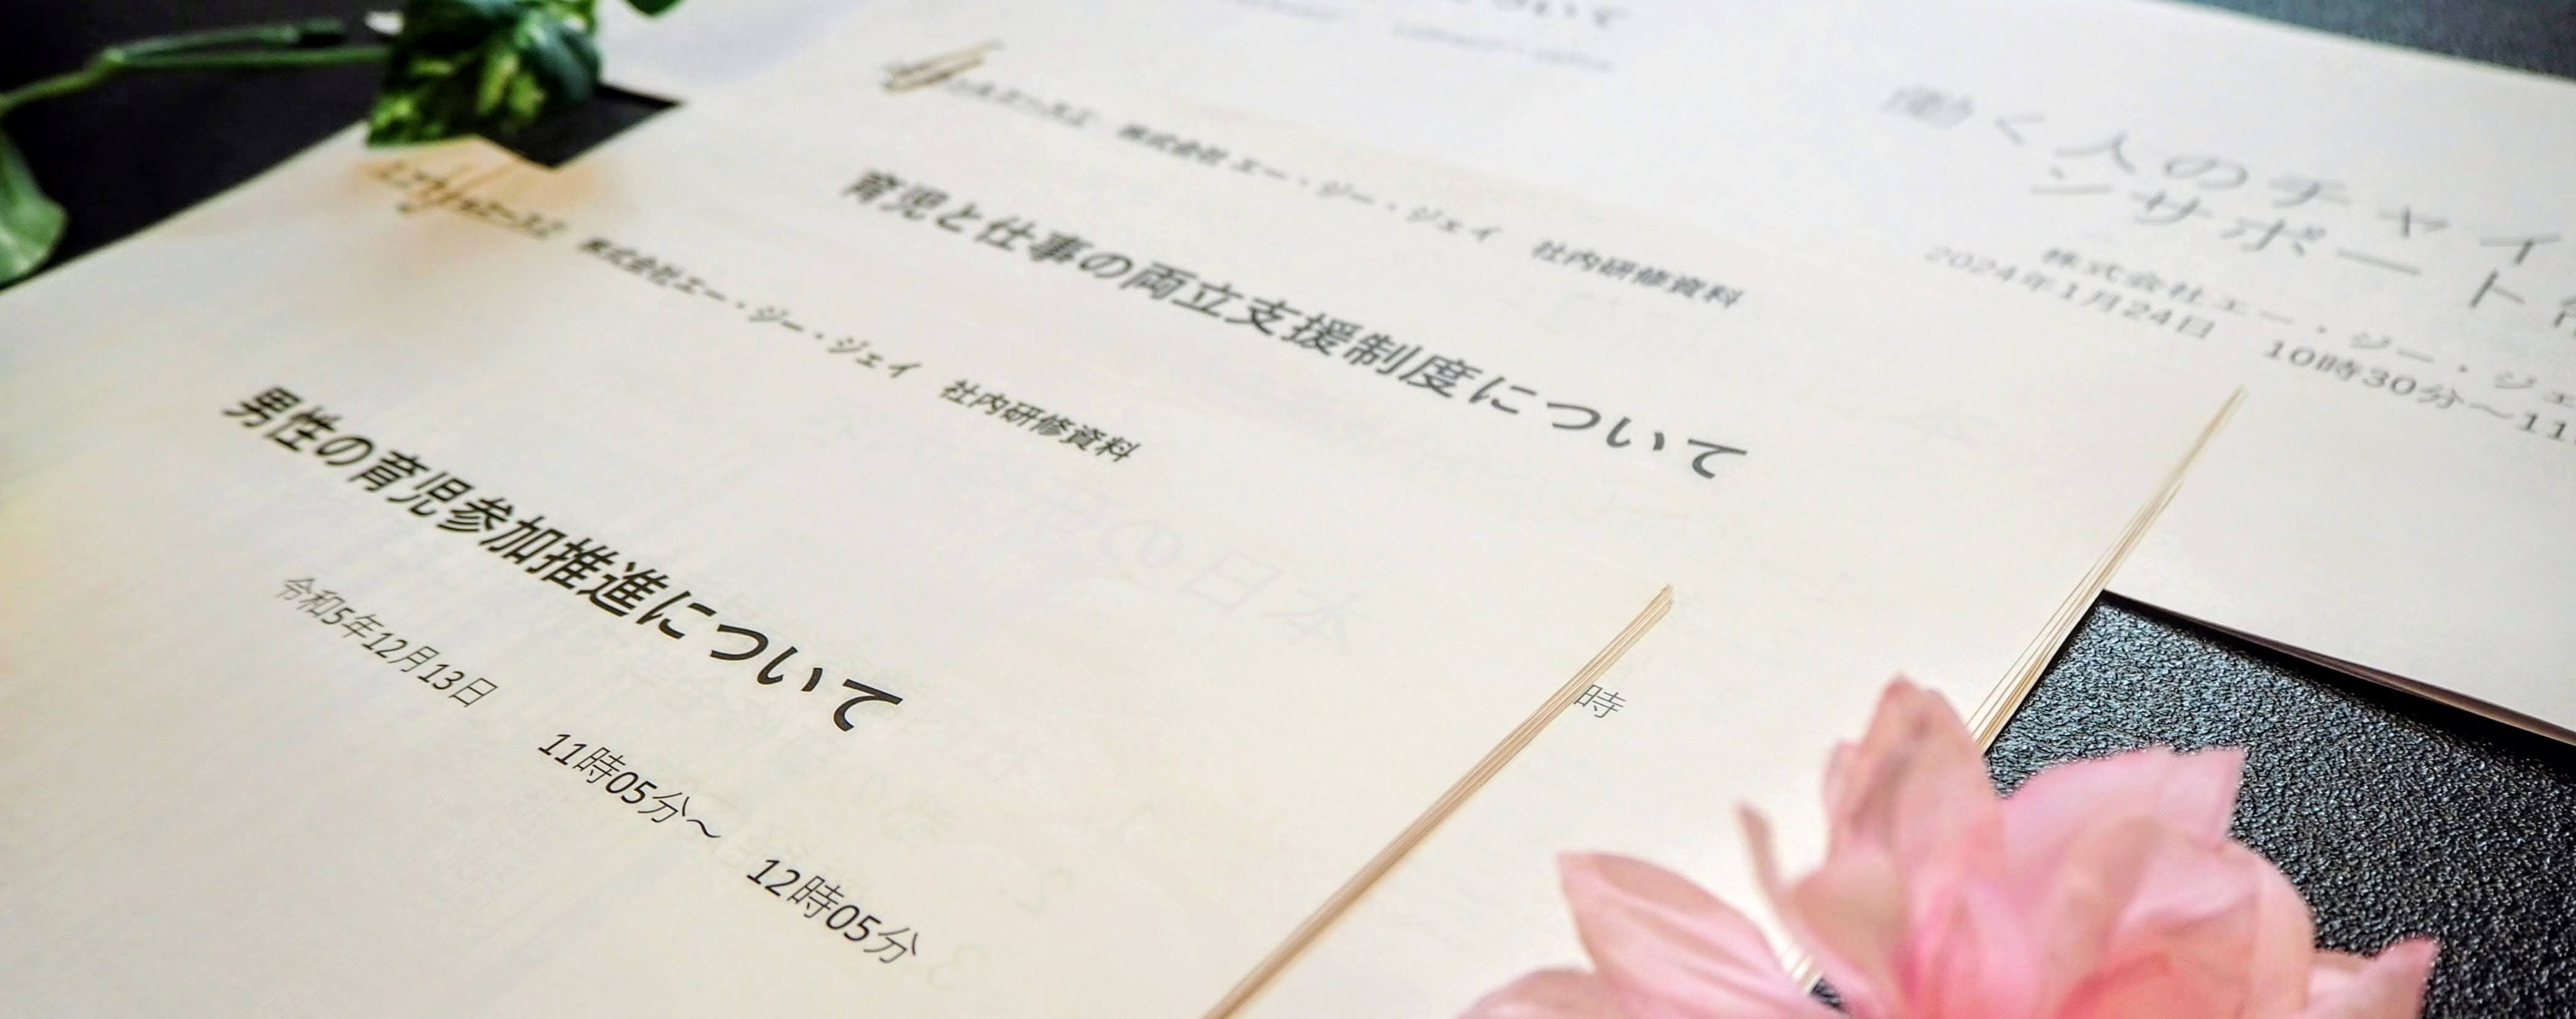 株式会社エー・ジー・ジェイ 社内研修資料
男性の育児参加推進について
令和5年12月13日 11時05分～ 12時05分
株式会社 エー・ジー・ジェイ 社内研修資料
育児と仕事の両立支援制度について
時
働く人のチャイ
ンサポート
株式会社エー・ジー・ジェ
2024年1月24日 10時30分～11
ついて
の日本